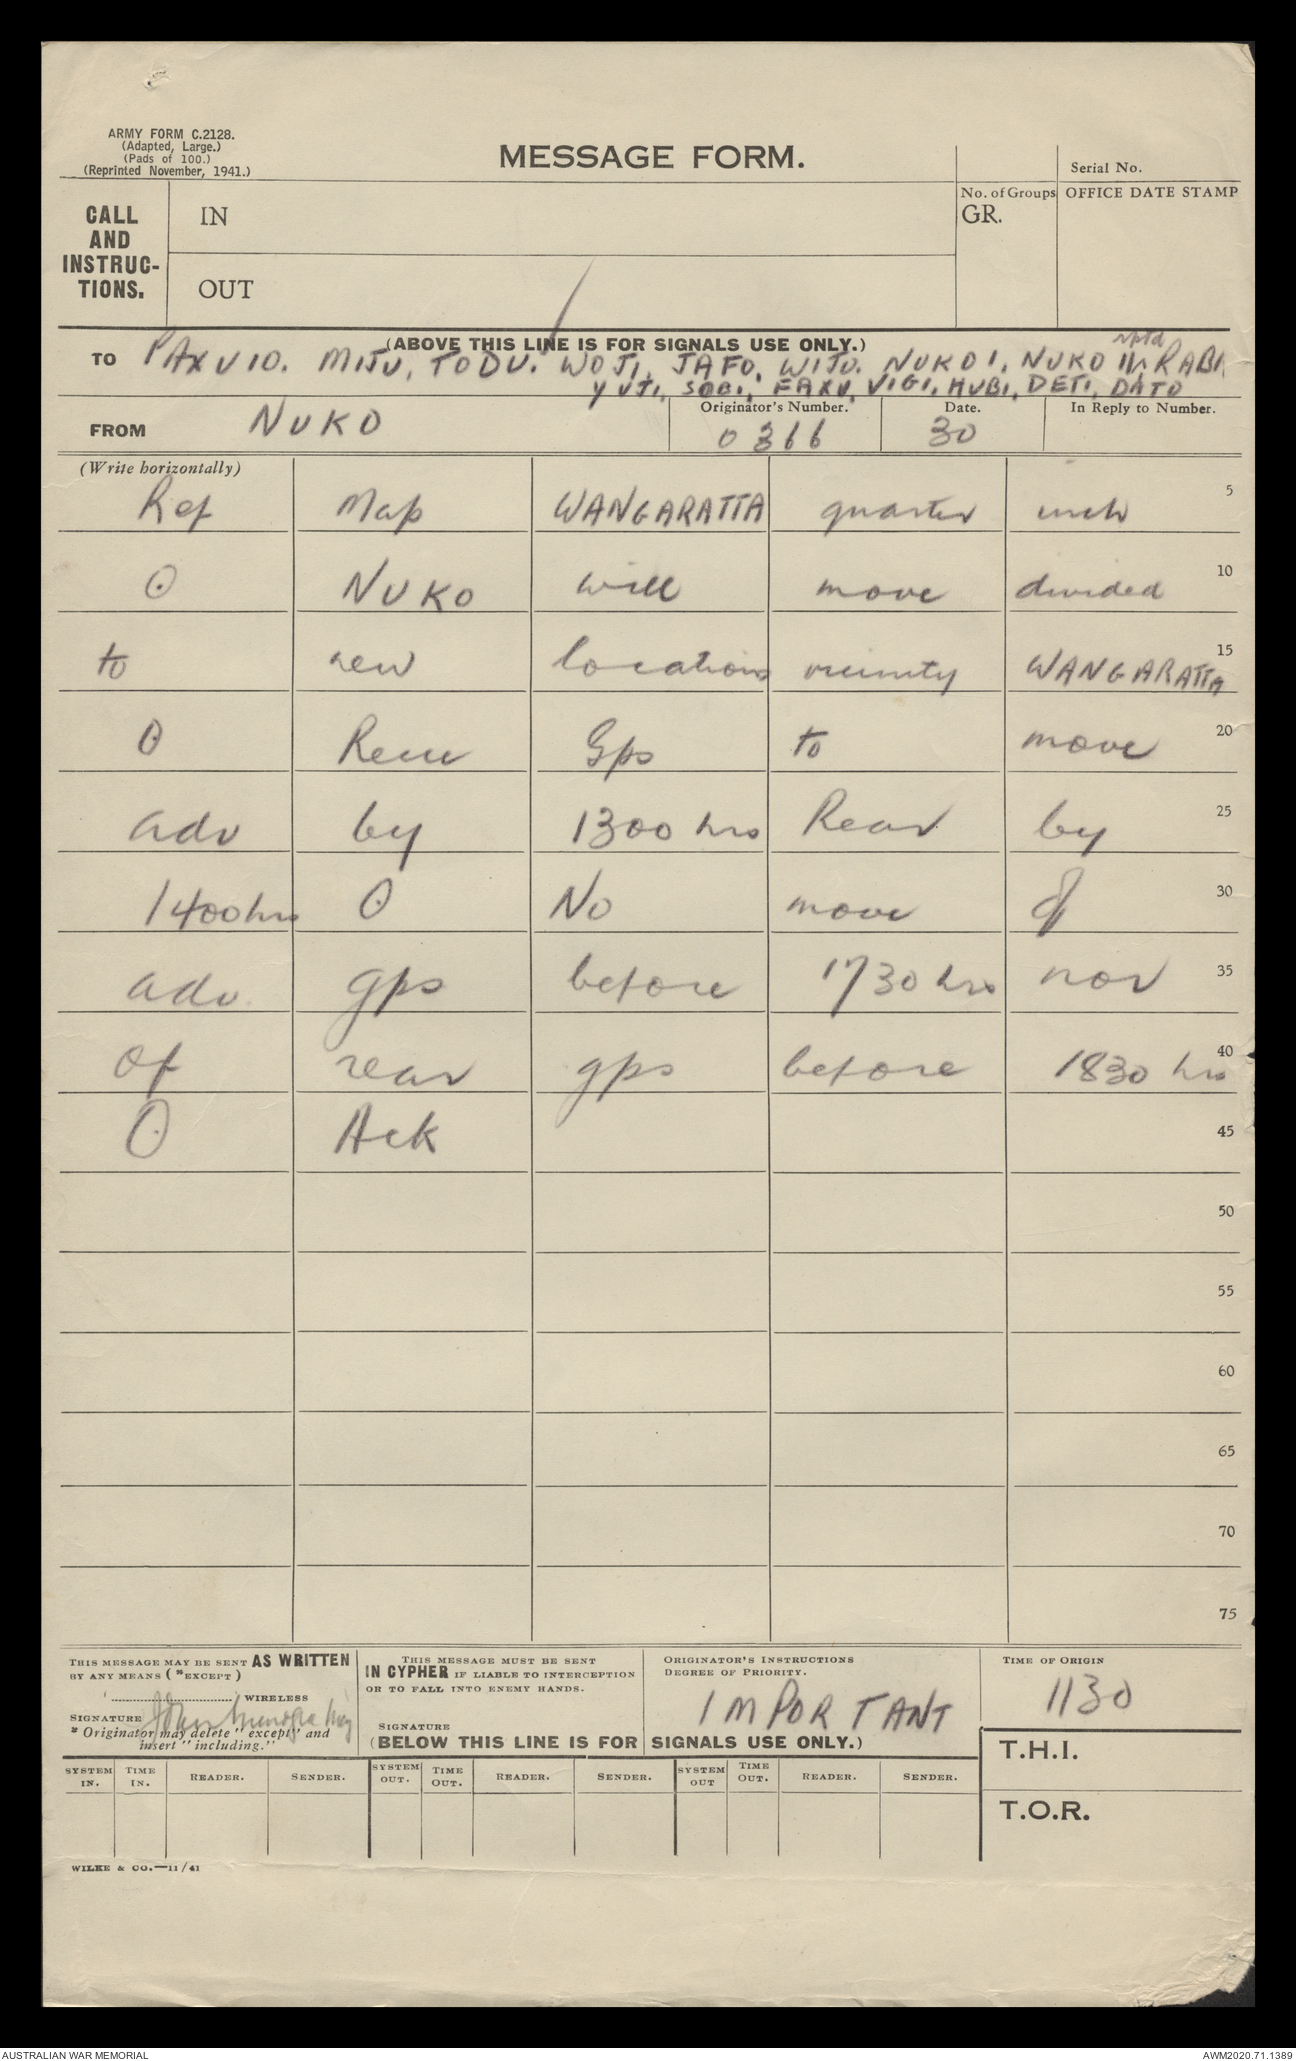 ARMY FORM C.2128.
(Adapted, Large.)
(Pads of 100.)
(Reprinted November, 1941.)
MESSAGE FORM.
Serial No.
CALL AND INSTRUC- TIONS.
IN
No. of Groups GR.
OFFICE DATE STAMP
OUT
(ABOVE THIS LINE IS FOR SIGNALS USE ONLY.)
rptd
TO PAXU10. MIJU, TODU. WOJI, JAFO, WIJO. NUKO1, NUKO RABI
YUJI, SOBI, FAXU, VIGI, HUBI, DETI, DATO
FROM NUKO Originator's Number. 0366 Date. 30 In Reply to Number.
(Write horizontally)
Ref Map WANGARATTA quarter inch 5
O NUKO will move divided 10
to new locations vicinity WANGARATTA 15
O Rece Gps to move 20
adv by 1300 hrs Rear by 25
1400 hrs O No move of 30
adv. gps before 1730 hrs nor 35
of rear gps before 1830 hrs 40
O Ack 45
50
55
60
65
70
75
THIS MESSAGE MAY BE SENT AS WRITTEN BY ANY MEANS (*EXCEPT)
WIRELESS
SIGNATURE
* Originator may delete "except" and insert "including."
THIS MESSAGE MUST BE SENT IN CYPHER IF LIABLE TO INTERCEPTION OR TO FALL INTO ENEMY HANDS.
SIGNATURE
ORIGINATOR'S INSTRUCTIONS DEGREE OF PRIORITY.
IMPORTANT
TIME OF ORIGIN
1130
(BELOW THIS LINE IS FOR SIGNALS USE ONLY.)
T.H.I.
SYSTEM IN. TIME IN. READER. SENDER. SYSTEM OUT. TIME OUT. READER. SENDER. SYSTEM OUT TIME OUT. READER. SENDER.
T.O.R.
WILKE & CO.—11/41
AUSTRALIAN WAR MEMORIAL
AWM2020.71.1389